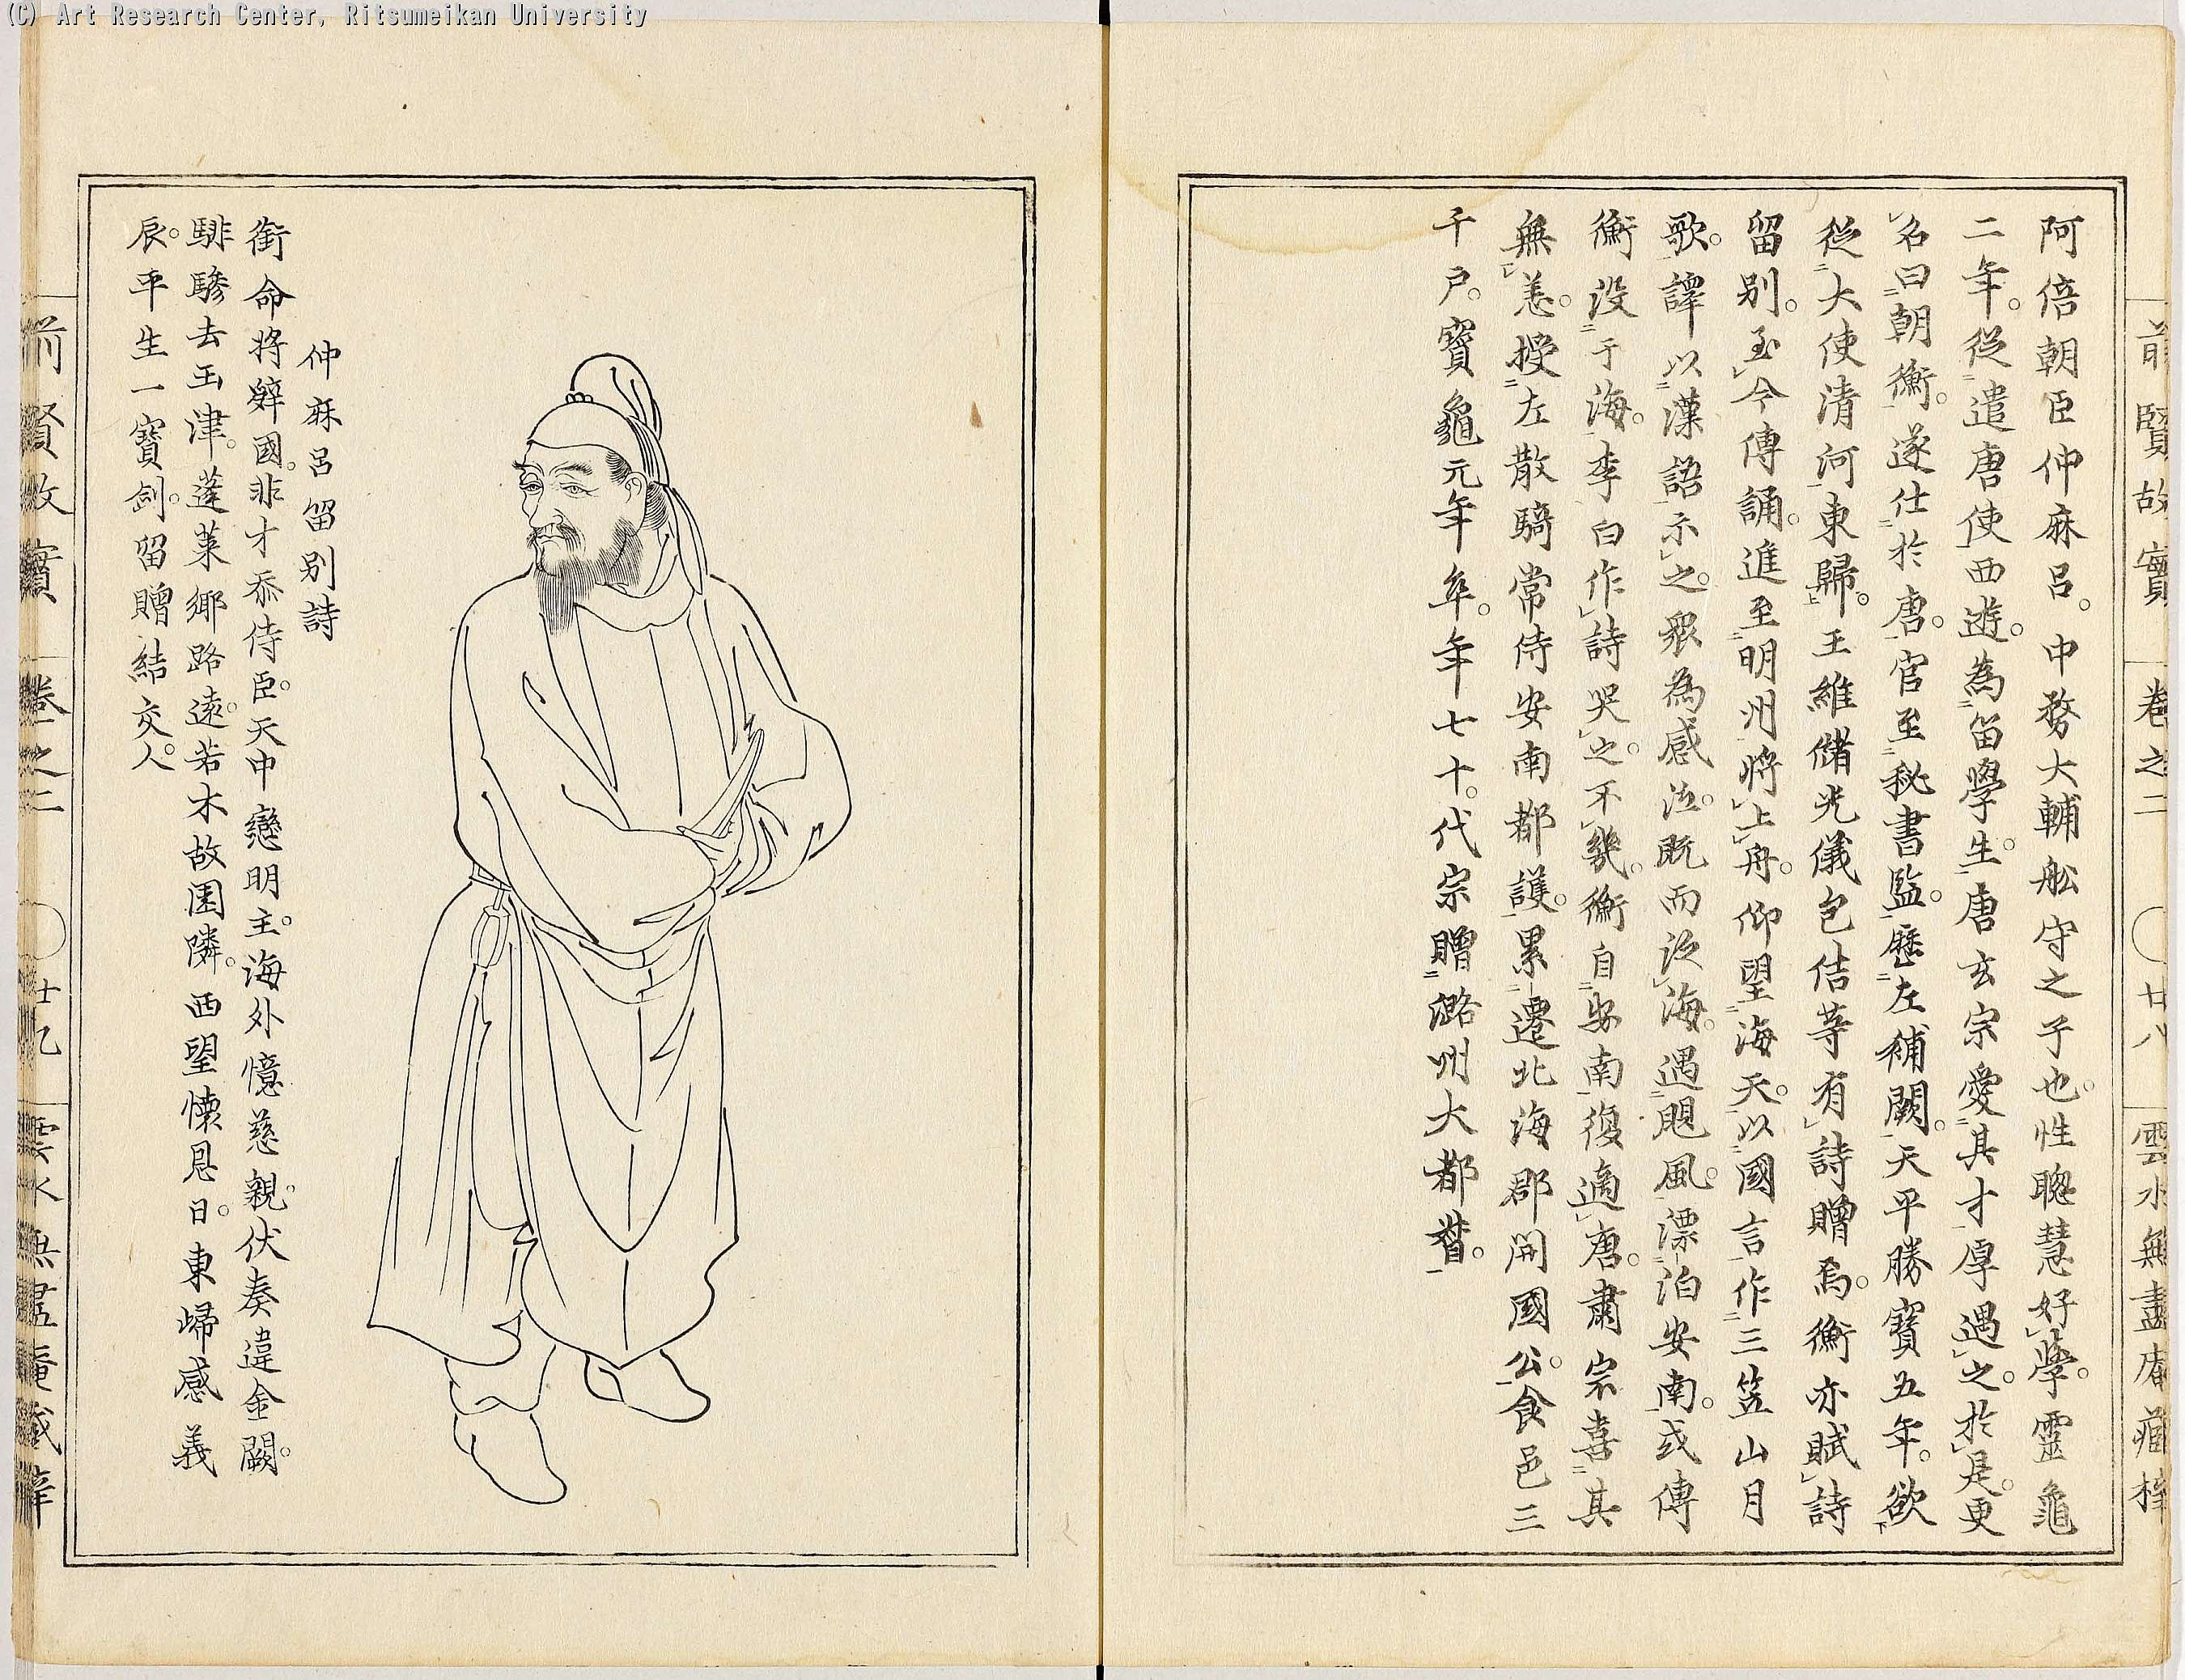 (C) Art Research Center, Ritsumeikan University
前賢故實 卷之二 〇廿八 雲水無盡庵藏梓
阿倍朝臣仲麻呂。中務大輔舩守之子也。性聰慧好學。靈龜
二年。從遣唐使西遊。為留學生。唐玄宗愛其才厚遇之。於是。更
名曰朝衡。遂仕於唐。官至秘書監。歷左補闕。天平勝寶五年。欲
從大使清河東歸。王維儲光儀包佶等有詩贈焉。衡亦賦詩
留別。至今傳誦。進至明州將上舟。仰望海天。以國言作三笠山月
歌。譯以漢語示之。眾為感泣。既而泛海。遇颶風。漂泊安南。或傳
衡没于海。李白作詩哭之。不幾。衡自安南復適唐。肅宗喜其
無恙。授左散騎常侍安南都護。累遷北海郡開國公。食邑三
千戶。寶龜元年卒。年七十。代宗贈潞州大都督。
仲麻呂留別詩
銜命將辭國。非才忝侍臣。天中戀明主。海外憶慈親。伏奏違金闕。
騑驂去玉津。蓬萊鄉路遠。若木故園隣。西望懷恩日。東歸感義
辰。平生一寶劍。留贈結交人。
前賢故實 卷之二 〇廿九 雲水無盡庵藏梓